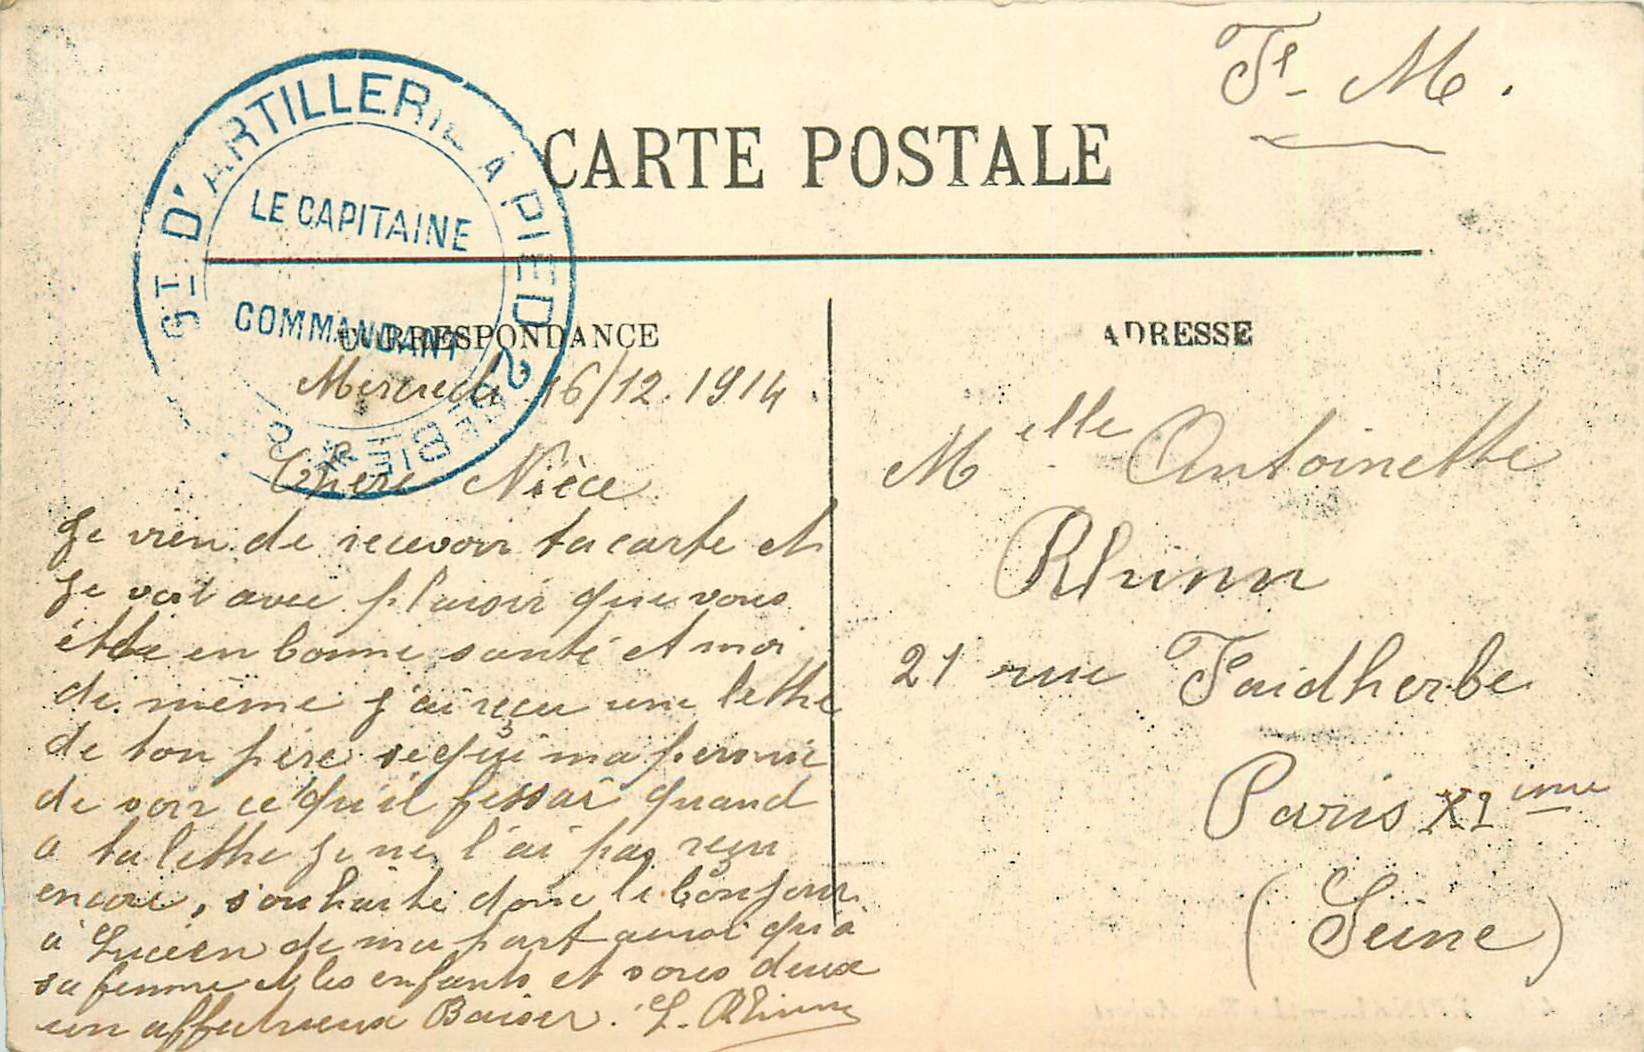 Ft - M.
CARTE POSTALE
GT D'ARTILLERIE A PIED
LE CAPITAINE
COMMANDANT
CORRESPONDANCE
ADRESSE
Mercredi 16/12.1914.
Chère Nièce
Je vien de recevoir ta carte et
Je voit avec plaisir que vous
ètte en bonne santé et moi
de même j'ai reçu une lettre
de ton père se qui ma permie
de voir ce qu'il fessai quand
a ta lettre je ne l'ai pas reçu
encore, souhaite donc le bonjour
à Lucien de ma part ainsi qu'à
sa femme et les enfants et vous deux
un affectueux Baiser. L. Rhinn
Melle Antoinette
Rhinn
21 rue Faidherbe
Paris XI ème
(Seine)